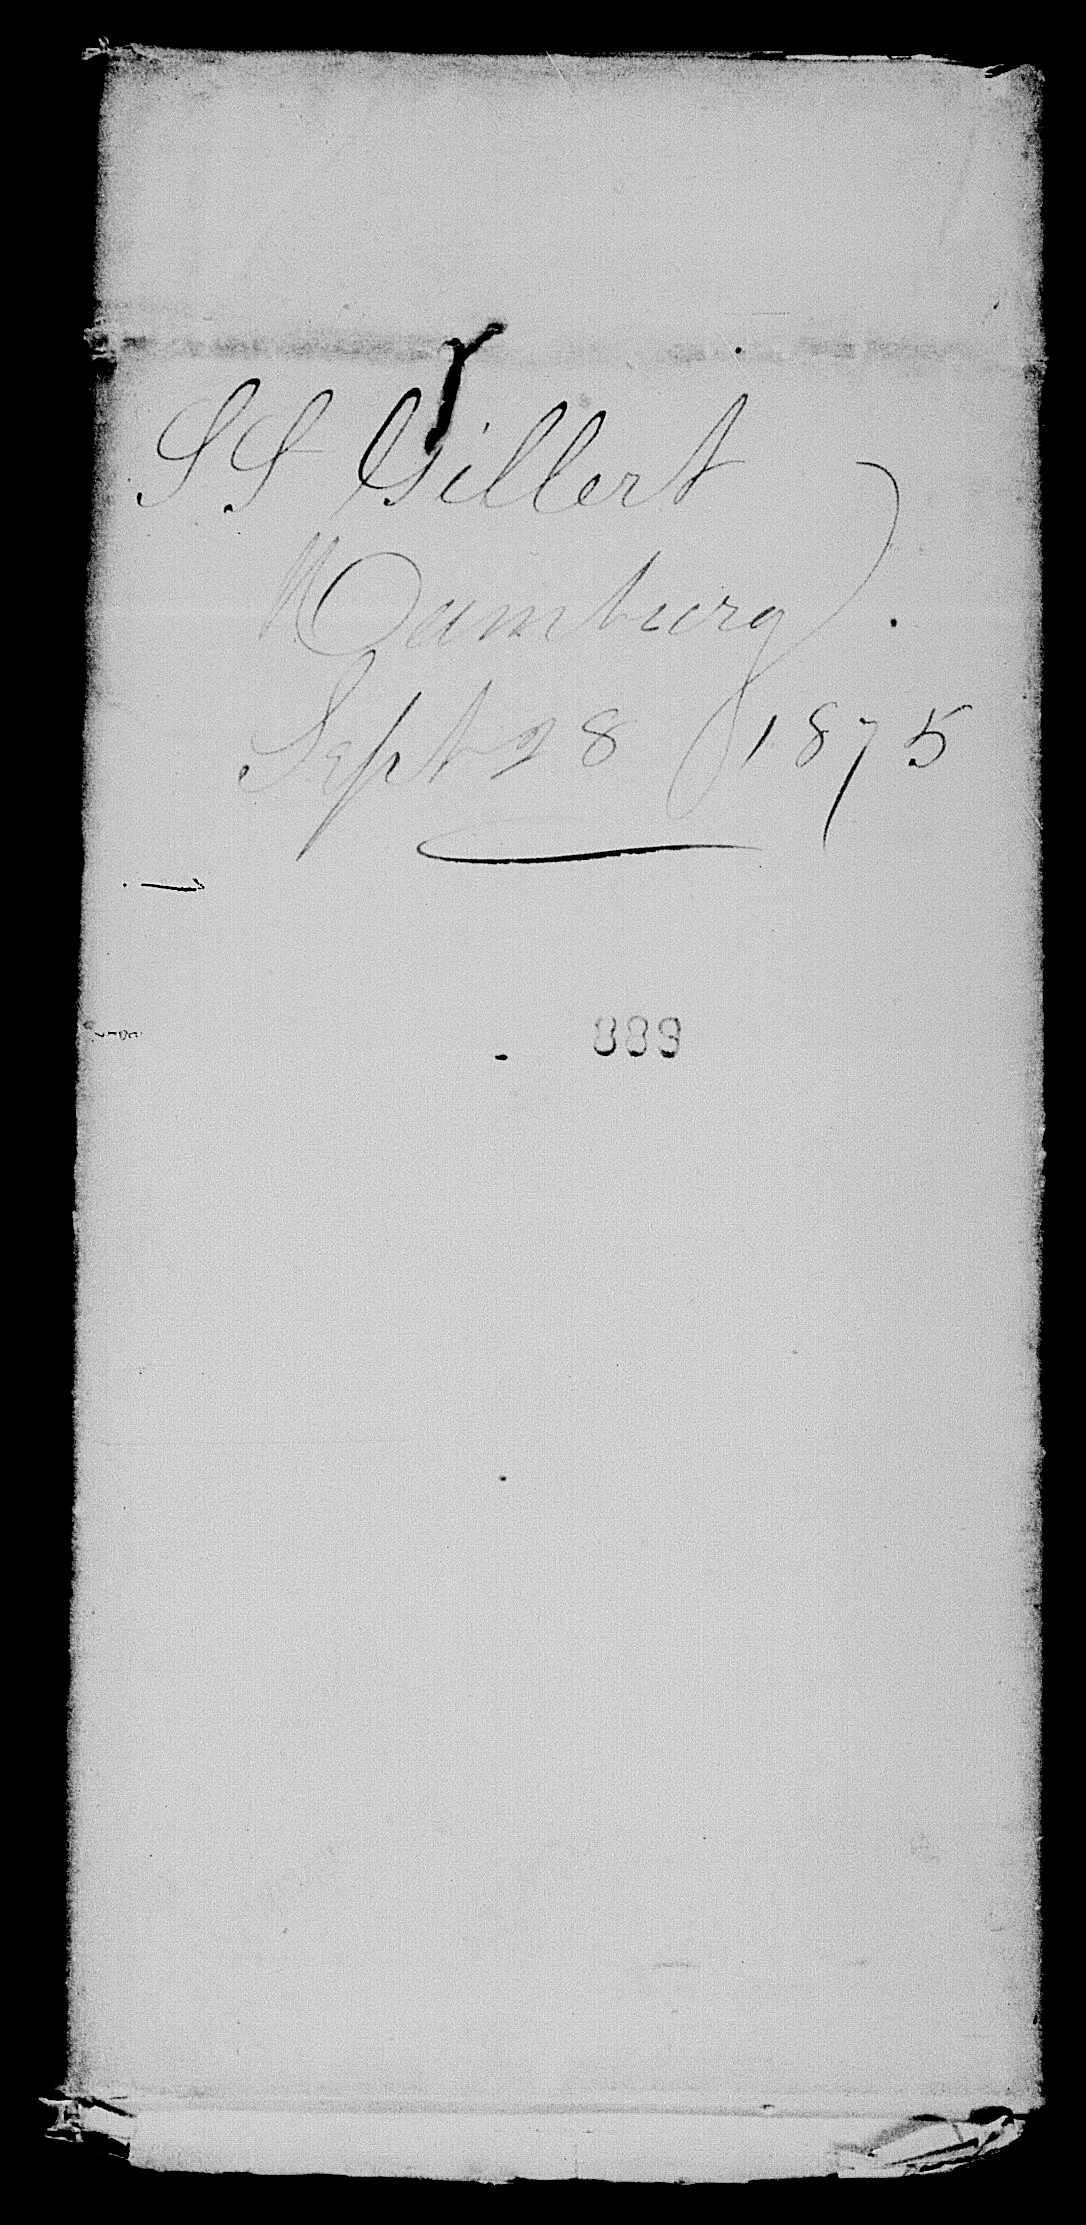 SS Gillert
Hamburg
Sept 28 1875
889